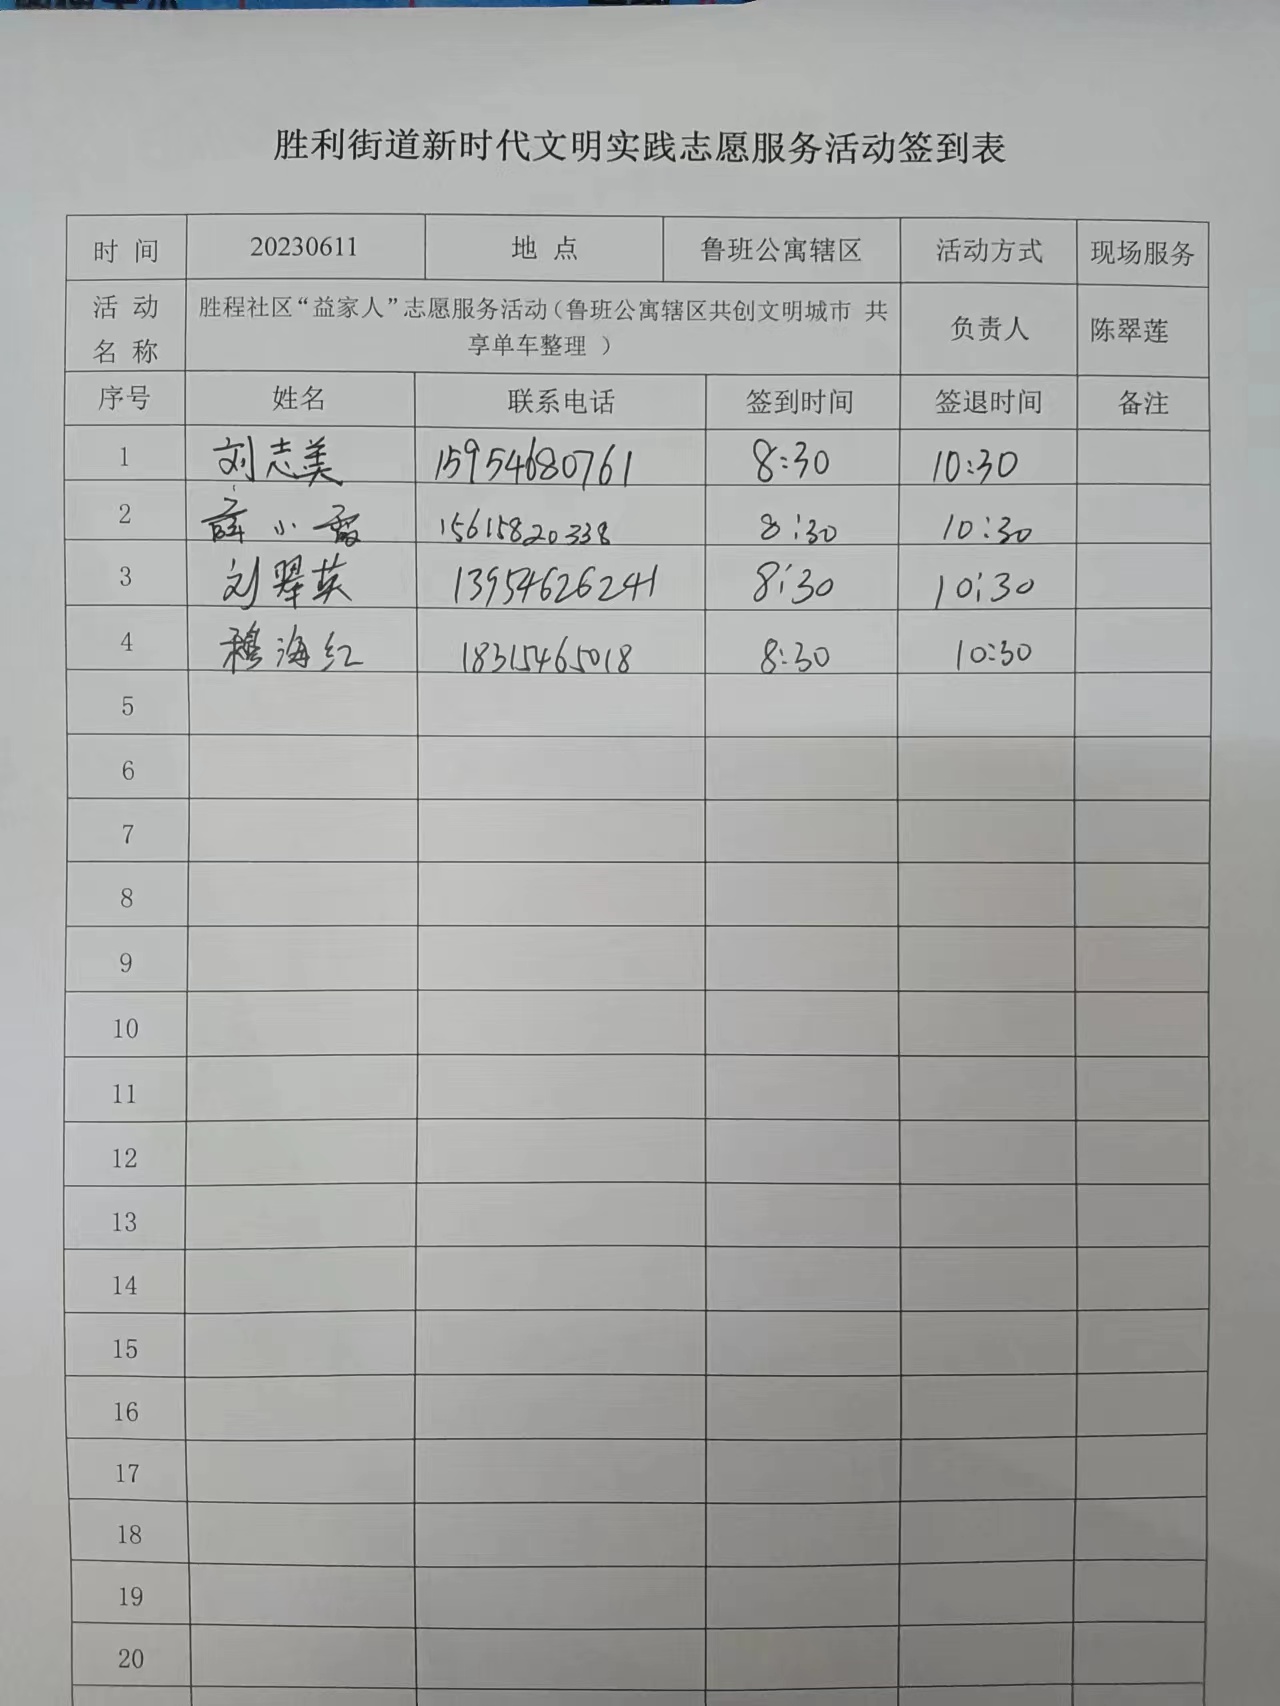 胜利街道新时代文明实践志愿服务活动签到表
时 间 20230611 地 点 鲁班公寓辖区 活动方式 现场服务
活 动 名 称 胜程社区“益家人”志愿服务活动（鲁班公寓辖区共创文明城市 共
享单车整理 ） 负责人 陈翠莲
序号 姓名 联系电话 签到时间 签退时间 备注
1 刘志美 15954680761 8:30 10:30
2 薛小霞 15615820338 8:30 10:30
3 刘翠英 13954626241 8:30 10:30
4 穆海红 18315465018 8:30 10:30
5
6
7
8
9
10
11
12
13
14
15
16
17
18
19
20